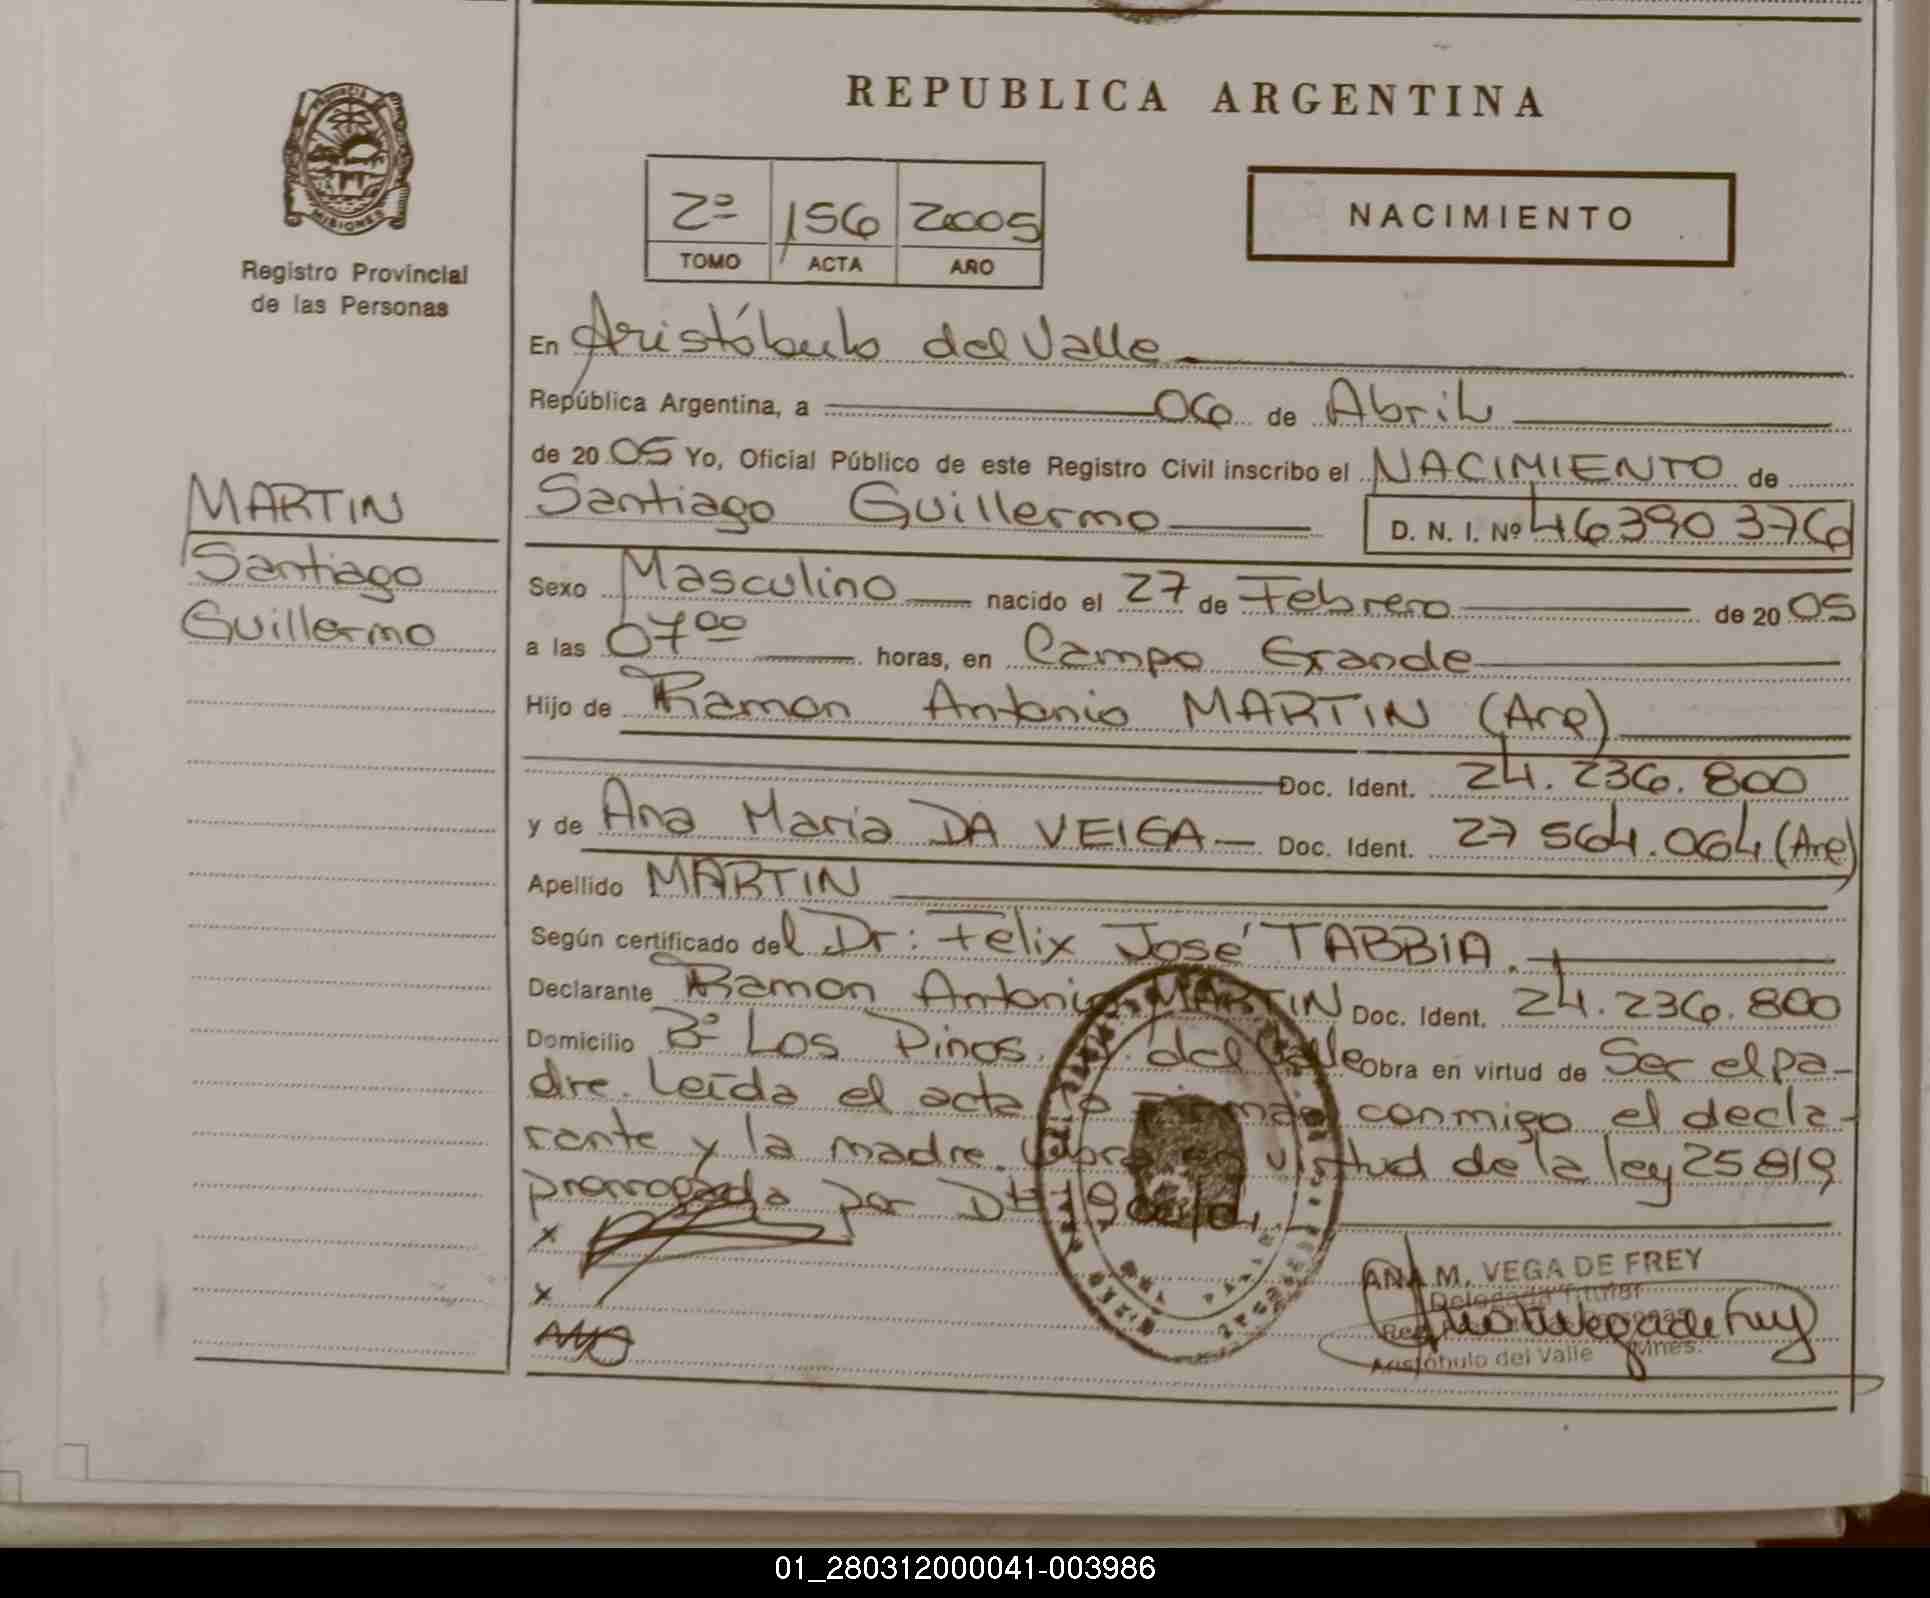 REPUBLICA ARGENTINA
PROVINCIA DE
MISIONES
Registro Provincial
de las Personas
2º 156 2005
TOMO ACTA AÑO
NACIMIENTO
En Aristóbulo del Valle
República Argentina, a 06 de Abril
de 2005 Yo, Oficial Público de este Registro Civil inscribo el NACIMIENTO de
Santiago Guillermo D. N. I. Nº 46390376
MARTIN
Santiago
Guillermo
Sexo Masculino nacido el 27 de Febrero de 2005
a las 07⁰⁰ horas, en Campo Grande
Hijo de Ramon Antonio MARTIN (Arg)
Doc. Ident. 24.236.800
y de Ana Maria DA VEIGA Doc. Ident. 27 564.064 (Arg)
Apellido MARTIN
Según certificado del Dr: Felix José TABBIA.
Declarante Ramon Antonio MARTIN Doc. Ident. 24.236.800
Domicilio Bº Los Pinos. del Valle Obra en virtud de Ser el pa-
dre. Leída el acta la firman conmigo el decla-
rante y la madre. Labra en virtud de la ley 25819
prorrogada por
x
x
ANA M. VEGA DE FREY
Delegada Titular
Aristóbulo del Valle Mnes.
01_280312000041-003986